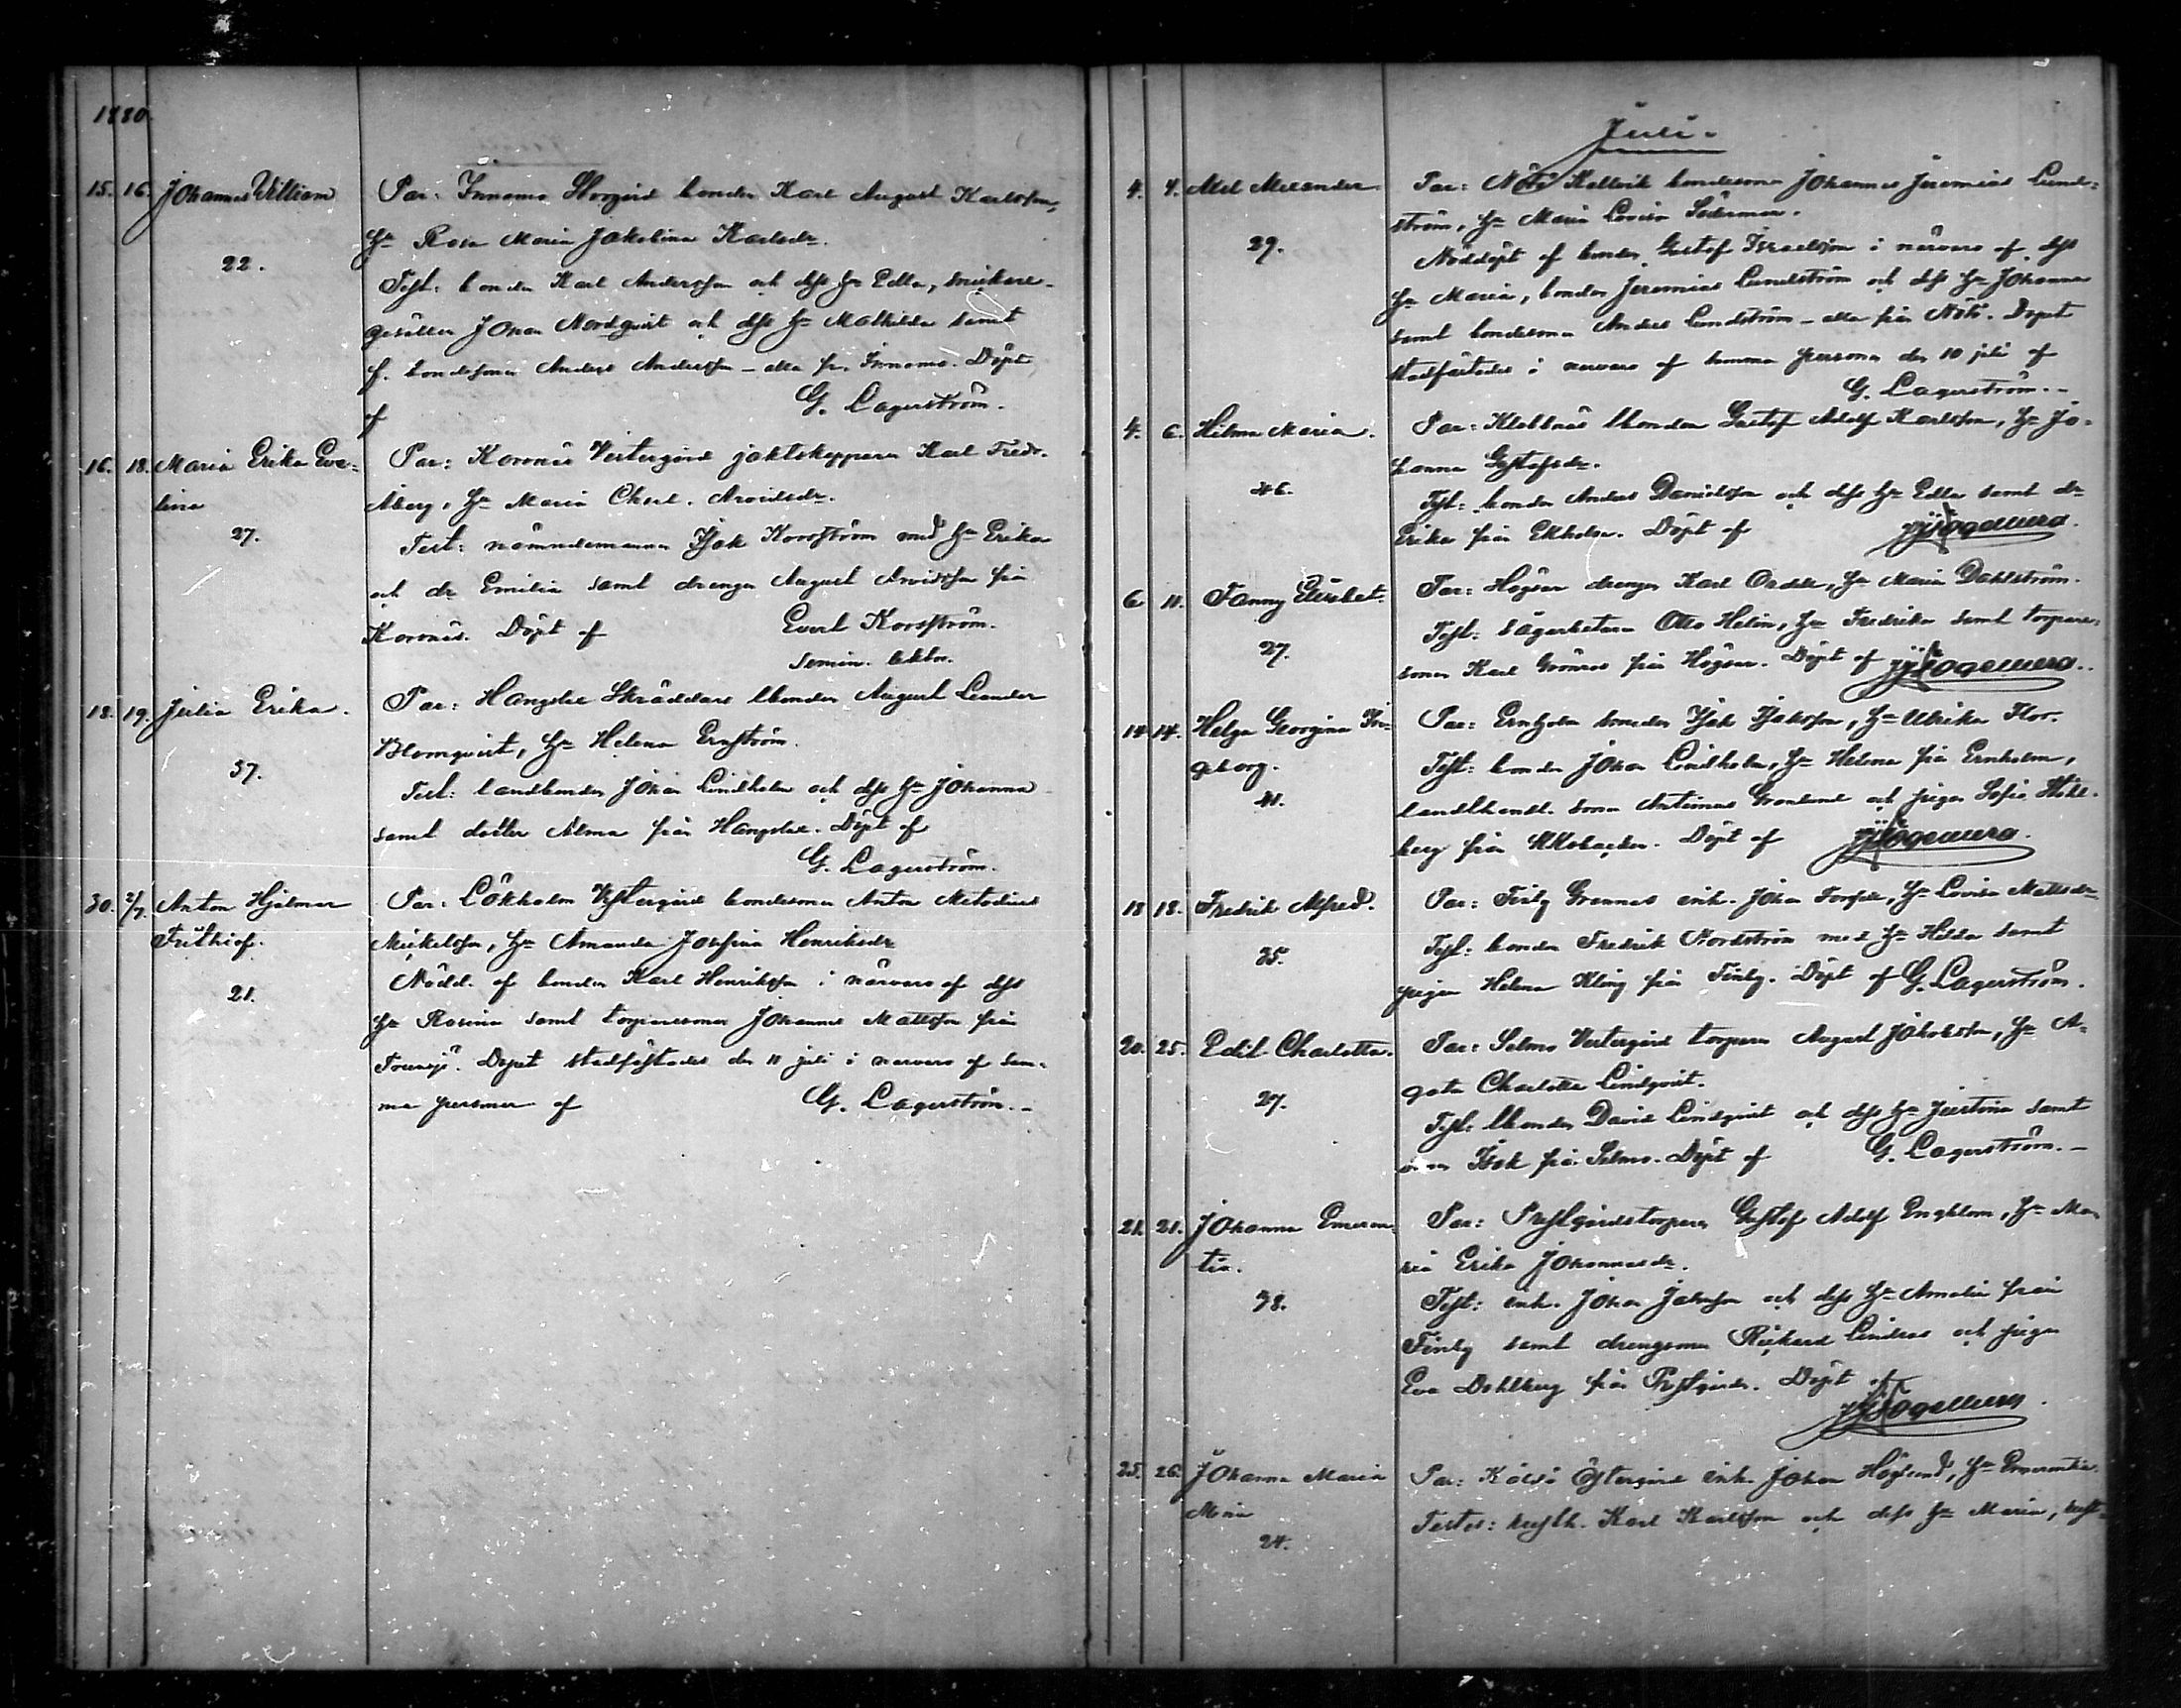 1880.
15. 16. Johannes William
22.
Par: Innamo Storgård bonden Karl August Karlsson,
Hu Rosa Maria Jakobina Karlsdr.
Test: bonden Karl Andersson och dess hu Edla, snickare-
gesällen Johan Nordqvist och dess hu Mathilda samt
f. bondesonen Anders Andersson – alla fr. Innamo. Döpt
af G. Lagerström.
16. 18. Maria Erika Eve-
lina
27.
Par: Korsnäs Vestergård jaktskepparen Karl Fredr.
Åberg, Hu Maria Charl. Arvidsdr.
Test: nämndemannen Isak Korsström med hu Erika
och dr Emilia samt drengen August Arvidsson från
Korsnäs. Döpt af Evert Korsström.
Semin. lektor.
18. 19. Julia Erika.
37.
Par: Hangslax Skräddars lbonden August Leander
Blomqvist, Hu Helena Ernström.
Test: landbonden Johan Lindholm och dess hu Johanna
samt dotter Alma från Hangslax. Döpt af
G. Lagerström.
30. 2/7. Anton Hjalmar
Frithiof.
21.
Par: Lökholm Vestergård bondesonen Anton Metodius
Mickelsson, Hu Amanda Josefina Henriksdr
Nödd. af bonden Karl Henriksson i närvaro af dess
hu Rosina samt torparesonen Johannes Mattsson från
Dopet stadfästades den 11 juli i närvaro af sam-
ma personer af G. Lagerström. –
Juli.
4. 4. Axel Alexander.
29.
Par: Nötö Kallvik bondesonen Johannes Jeremias Lund-
ström, Hu Maria Lovisa Söderman.
Nöddöpt af bonden Gustaf Israelsson i närvaro af dess
hu Maria, bonden Jeremias Lundström och dess hu Johanna
samt bondesonen Anders Lundström – alla från Nötö. Dopet
stadfästades i närvaro af samma personer den 10 juli af
G. Lagerström. –
4. 6. Hilma Maria.
46.
Par: Klobbnäs lbonden Gustaf Adolf Karlsson, Hu Jo-
hanna Gustafsdr.
Test: bonden Anders Danielsson och dess hu Edla samt dr
Erika från Ekholm. Döpt af
6 11. Fanny Elisabet.
27.
Par: Högsar drengen Karl Hu Maria Dahlström.
Test: sågarbetaren Otto Helin, hu Fredrika samt torpare-
sonen Karl Grönros från Högsar. Döpt af
14 14. Helga Georgina In-
geborg.
41.
Par: Ernholm bonden Isak Isaksson, Hu Ulrika Flor.
Test: bonden Johan Lindholm, hu Helena från Ernholm,
landthandl. sonen Grönlund och pigan Sofia Ståhl-
berg från Döpt af
18 18. Fredrik Alfred.
35.
Par: Finby Grannas inh. Johan Forsell, Hu Lovisa Mattsdr
Test: bonden Fredrik Nordström med hu Hilda samt
pigan Helena Kling från Finby. Döpt af G. Lagerström.
20. 25. Edit Charlotta.
27.
Par: Selmo Vestergård torparen August Jakobsson, Hu A-
gata Charlotta Lindqvist.
Test: lbonden David Lindqvist och dess hu Justina samt
sonen Isak från Selmo. Döpt af G. Lagerström. –
21. 21. Johanna Emeren-
tia.
38.
Par: Prestgårdstorparen Gustaf Adolf Engblom, Hu Ma-
ria Erika Johannesdr.
Test: inh. Johan Jakosson och dess hu Amalia från
Finby samt drengsonen Rickard Lindros och pigan
Eva Dahlberg från Prestgård. Döpt af
25. 26. Johanna Maria
Maria
24.
Par: Kälsö Östergård inh. Johan Höglund, Hu Emerentia.
Testes: rusth. Karl Karlsson och dess hu Maria, rust-